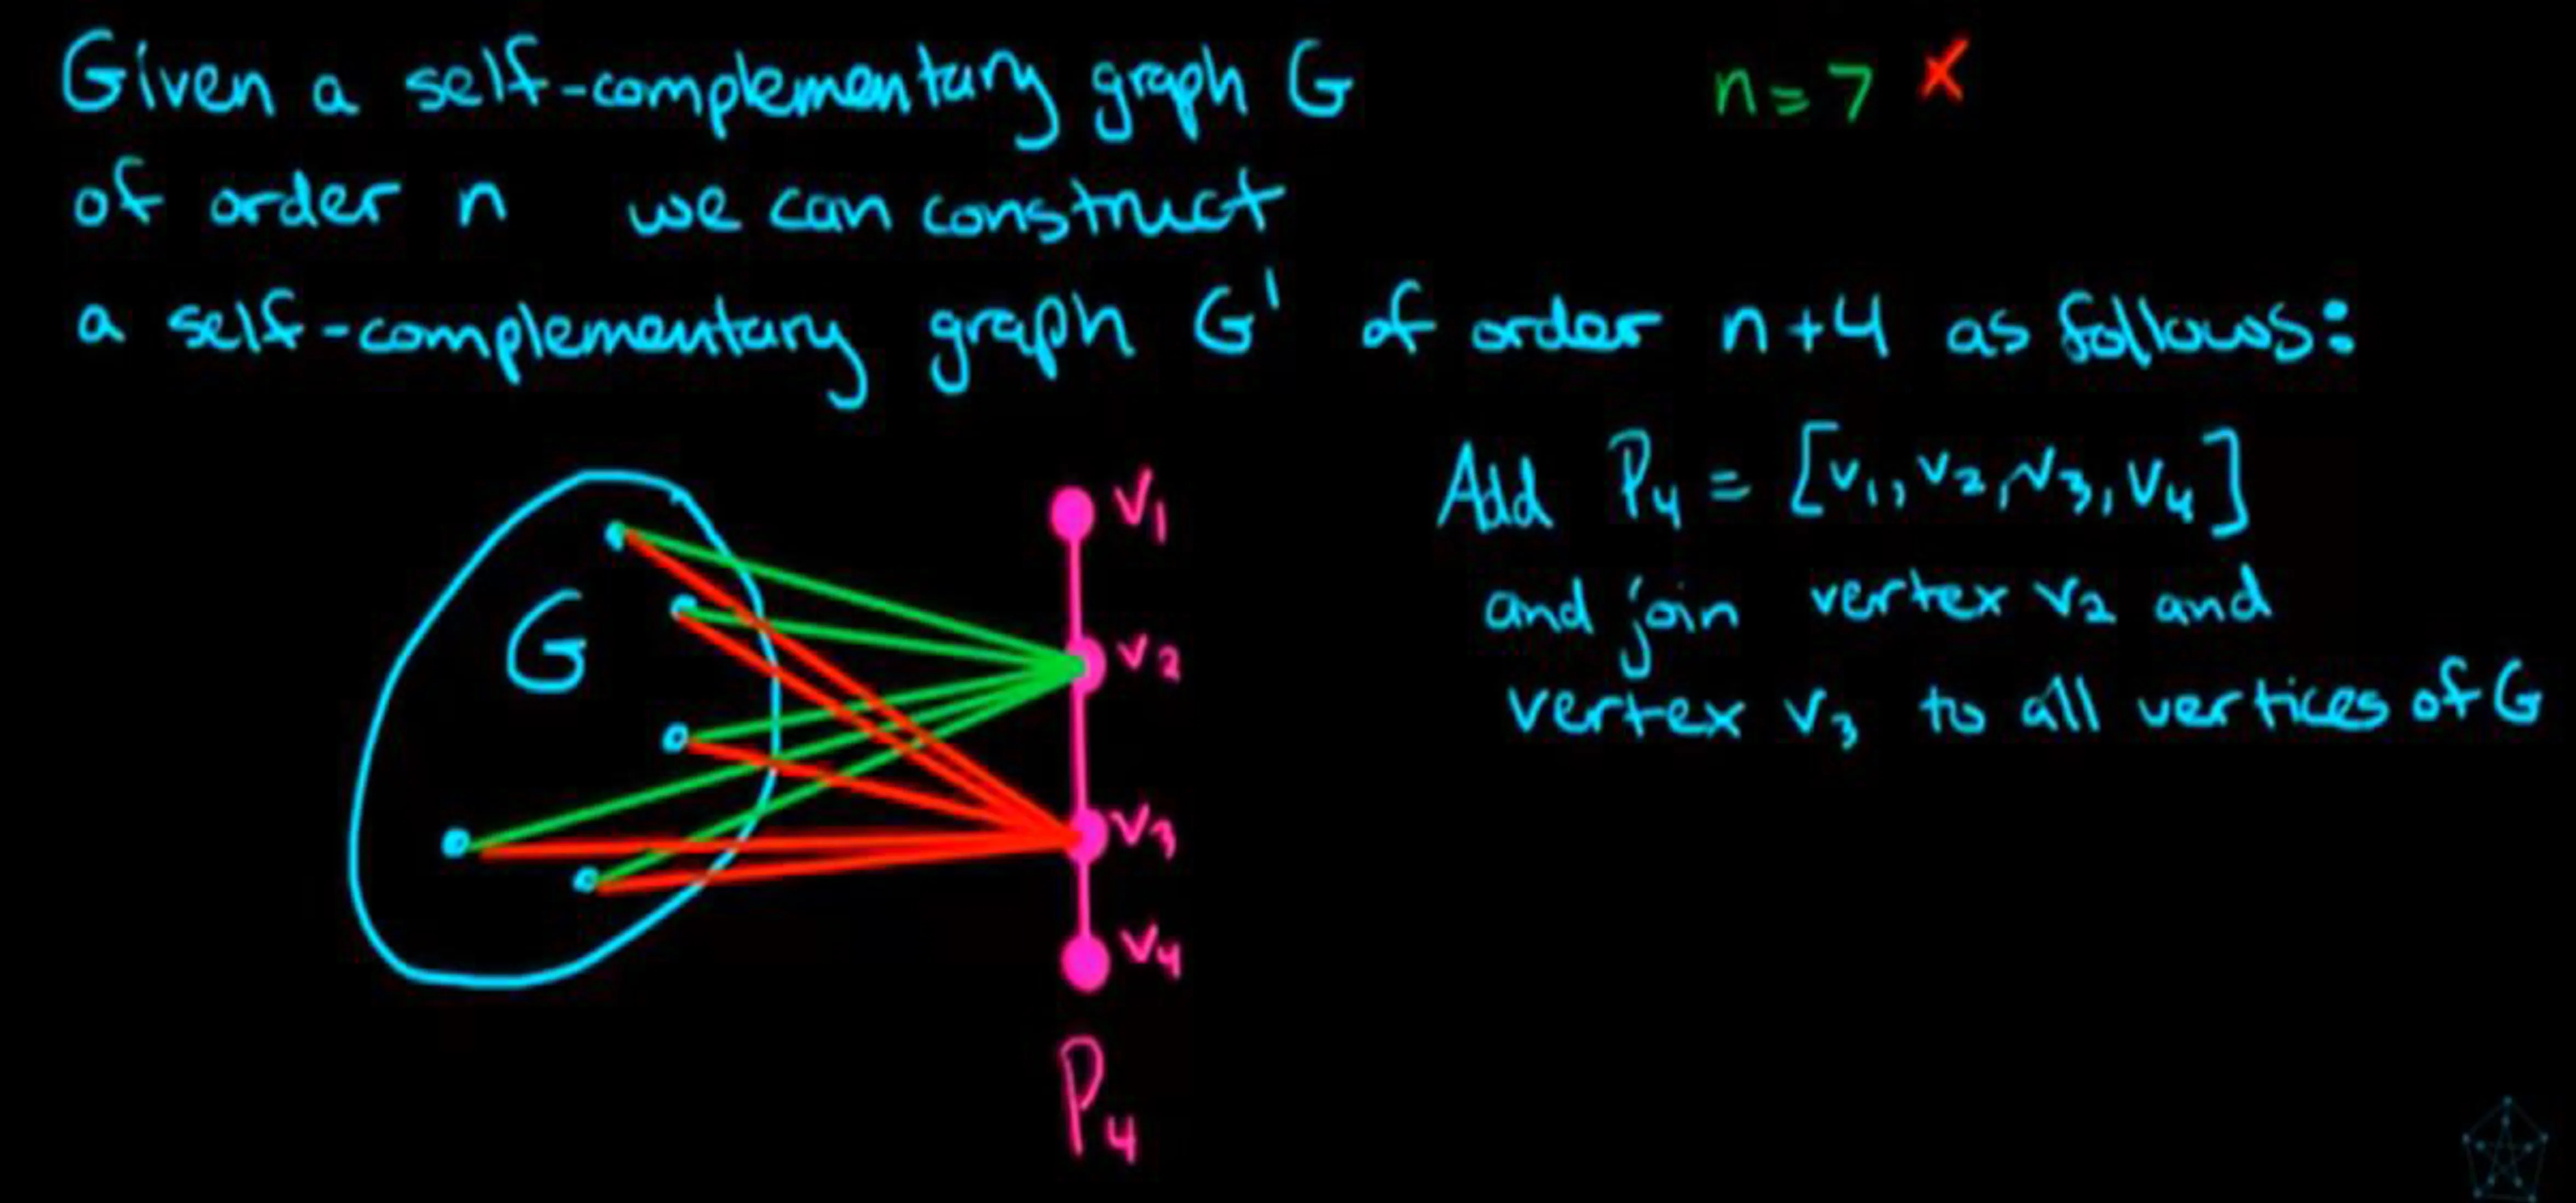 Given a self-complementary graph G
n=7 ✗
of order n we can construct
a self-complementary graph G' of order n+4 as follows:
Add P4 = [v1, v2, v3, v4]
and join vertex v2 and
vertex v3 to all vertices of G
G
v1
v2
v3
v4
P4